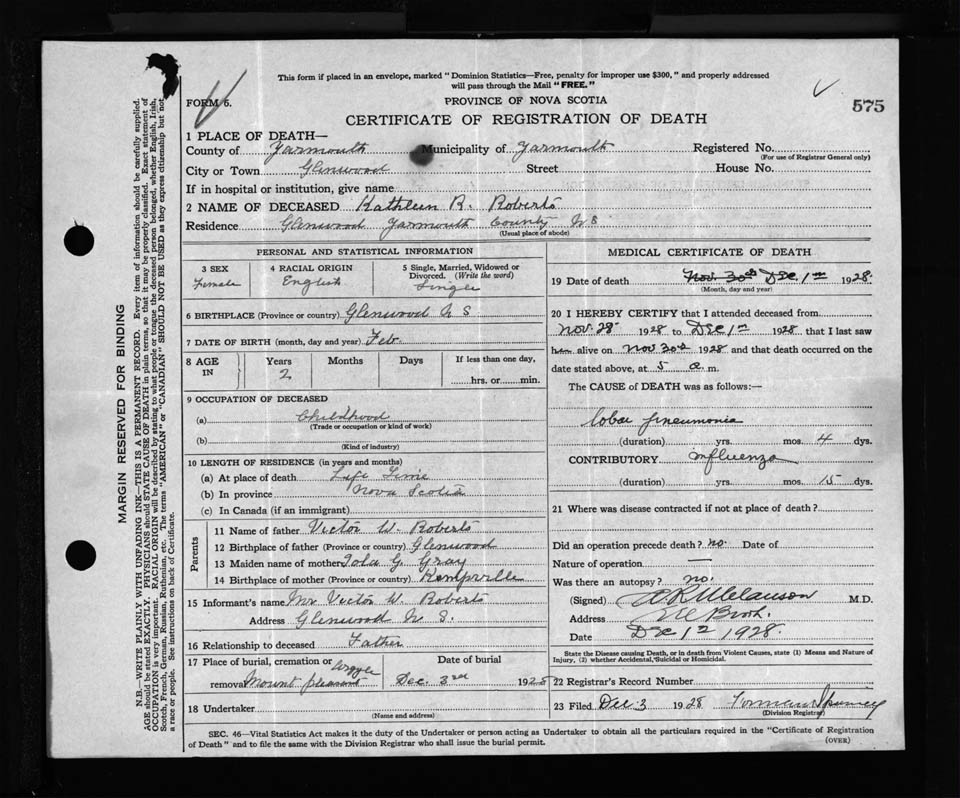 This form if placed in an envelope, marked "Dominion Statistics—Free, penalty for improper use $300," and properly addressed
will pass through the Mail "FREE."
FORM 6.
PROVINCE OF NOVA SCOTIA
575
CERTIFICATE OF REGISTRATION OF DEATH
1 PLACE OF DEATH—
County of Yarmouth Municipality of Yarmouth Registered No.
(For use of Registrar General only)
City or Town Glenwood Street House No.
If in hospital or institution, give name
2 NAME OF DECEASED Kathleen R. Roberts
Residence Glenwood Yarmouth County N S
(Usual place of abode)
PERSONAL AND STATISTICAL INFORMATION
3 SEX 4 RACIAL ORIGIN 5 Single, Married, Widowed or
Divorced. (Write the word)
Female English Single
6 BIRTHPLACE (Province or country) Glenwood N S
7 DATE OF BIRTH (month, day and year) Feb
8 AGE IN Years Months Days If less than one day,
2 hrs. or min.
9 OCCUPATION OF DECEASED
(a) Childhood
(Trade or occupation or kind of work)
(b)
(Kind of industry)
10 LENGTH OF RESIDENCE (in years and months)
(a) At place of death Life Time
(b) In province Nova Scotia
(c) In Canada (if an immigrant)
Parents
11 Name of father Victor W. Roberts
12 Birthplace of father (Province or country) Glenwood
13 Maiden name of mother G. Gray
14 Birthplace of mother (Province or country) Kempville
15 Informant's name Mr Victor W. Roberts
Address Glenwood N S.
16 Relationship to deceased Father
17 Place of burial, cremation or Argyle Date of burial
removal Mount pleasant Dec. 3rd 1928
18 Undertaker
(Name and address)
MEDICAL CERTIFICATE OF DEATH
19 Date of death Nov. 30th Dec 1st 1928
(Month, day and year)
20 I HEREBY CERTIFY that I attended deceased from
Nov. 28 1928 to Dec 1st 1928 that I last saw
her alive on Nov 30th 1928 and that death occurred on the
date stated above, at 5 a m.
The CAUSE of DEATH was as follows:—
lobar pneumonia
(duration) yrs. mos. 4 dys.
CONTRIBUTORY Influenza
(duration) yrs. mos. 15 dys.
21 Where was disease contracted if not at place of death?
Did an operation precede death? no. Date of
Nature of operation —
Was there an autopsy? no.
(Signed) M.D.
Address
Date Dec 1st 1928.
State the Disease causing Death, or in death from Violent Causes, state (1) Means and Nature of
Injury, (2) whether Accidental, Suicidal or Homicidal.
22 Registrar's Record Number
23 Filed Dec 3 1928
(Division Registrar)
SEC. 46—Vital Statistics Act makes it the duty of the Undertaker or person acting as Undertaker to obtain all the particulars required in the "Certificate of Registration
of Death" and to file the same with the Division Registrar who shall issue the burial permit.
(OVER)
MARGIN RESERVED FOR BINDING
N.B.—WRITE PLAINLY WITH UNFADING INK—THIS IS A PERMANENT RECORD. Every item of information should be carefully supplied.
AGE should be stated EXACTLY. PHYSICIANS should STATE CAUSE OF DEATH in plain terms, so that it may be properly classified. Exact statement of
OCCUPATION is very important. RACIAL ORIGIN will be described by stating to what people or tongue the deceased person belonged, whether English, Irish,
Scotch, French, German, Russian, Ruthenian, etc. The terms "AMERICAN" or "CANADIAN" SHOULD NOT BE USED as they express citizenship but not
a race or people. See instructions on back of Certificate.